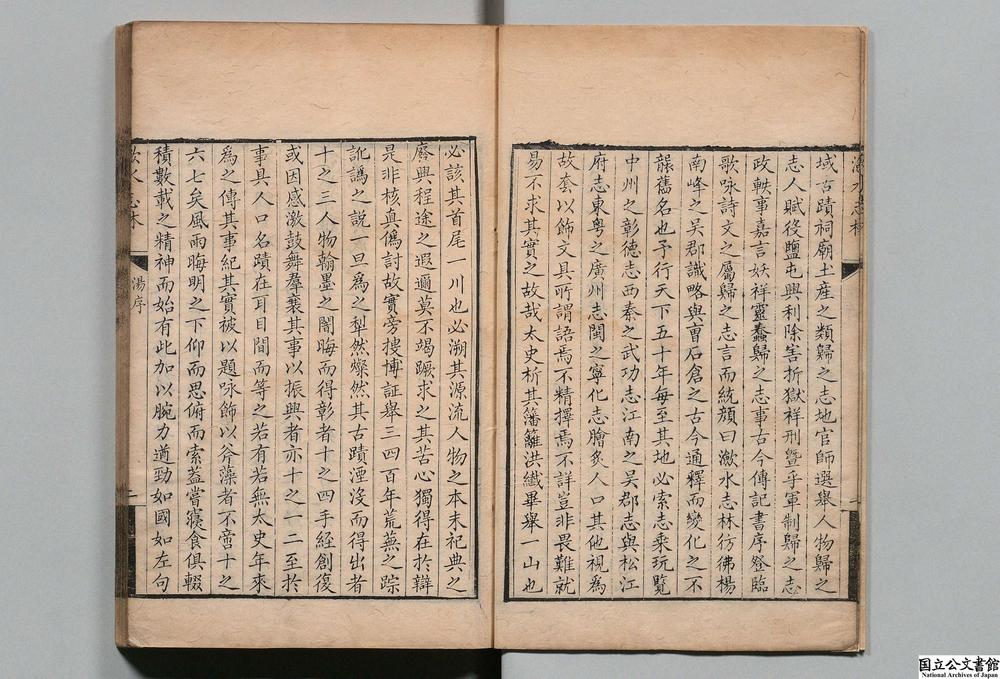 域古蹟祠廟土産之類歸之志地官師選舉人物歸之
志人賦役鹽屯興利除害折獄祥刑曁乎軍制歸之志
政軼事嘉言妖祥靈蠢歸之志事古今傳記書序登臨
歌咏詩文之屬歸之志言而統顔曰漵水志林彷彿楊
南峰之吳郡識略與曺石倉之古今通釋而變化之不
襲舊名也予行天下五十年每至其地必索志乘玩覽
中州之彰德志西秦之武功志江南之吳郡志與松江
府志東粤之廣州志閩之寧化志膾炙人口其他視爲
故套以飾文具所謂語焉不精擇焉不詳豈非畏難就
易不求其實之故哉太史析其籓籬洪纖畢舉一山也
必該其首尾一川也必溯其源流人物之本末祀典之
廢興程途之遐邇莫不竭蹶求之其苦心獨得在於辯
是非核真僞討故實旁搜博証舉三四百年荒蕪之踪
訛譌之說一旦爲之犁然燦然其古蹟湮沒而得出者
十之三人物翰墨之闇晦而得彰者十之四手經創復
或因感激鼓舞羣襄其事以振興者亦十之一二至於
事具人口名蹟在耳目間而等之若有若無太史年來
爲之傳其事紀其實被以題咏飾以斧藻者不啻十之
六七矣風雨晦明之下仰而思俯而索蓋嘗寢食俱輟
積數載之精神而始有此加以腕力遒勁如國如左句
湯序
二
国立公文書館
National Archives of Japan